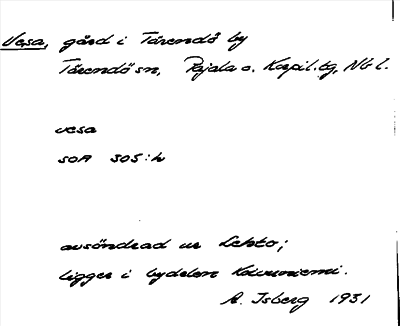 Vesa, gård i Tärendö by
Tärendö sn, Pajala o. Korpil. tg, Nb l.
vesa
SOA 305:4
avsöndrad ur Lehto;
ligger i bydelen Koivuniemi.
A. Isberg 1931